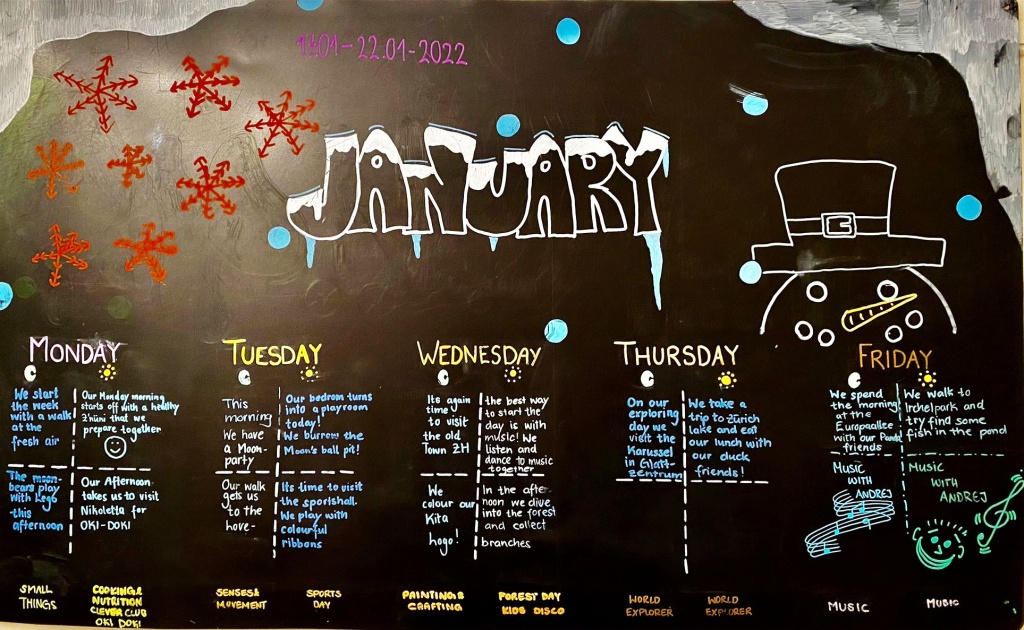 -22.01-2022
JANUARY
MONDAY
We start
the week
with a walk
at the
fresh air
Our Monday morning
starts off with a healthy
Znüni that we
prepare together
The moon-
bears play
with Lego
this
afternoon
Our Afternoon
takes us to visit
Nikoletta for
OKI-DOKI
SMALL
THINGS
COOKING &
NUTRITION
CLEVER CLUB
OKI DOKI
TUESDAY
This
morning
We have
a Moon-
party
Our bedrom turns
into a playroom
today!
We burrow the
Moon's ball pit!
Our walk
gets us
to the
hove-
Its time to visit
the sportshall.
We play with
colourful
ribbons
SENSES &
MOVEMENT
SPORTS
DAY
WEDNESDAY
Its again
time
to visit
the old
Town ZH
the best way
to start the
day is with
music! We
listen and
dance to music
together
We
colour our
Kita
hogo!
In the after-
noon we dive
into the forest
and collect
branches
PAINTING &
CRAFTING
FOREST DAY
KIDS DISCO
THURSDAY
On our
exploring
day we
visit the
Karussel
in Glatt-
zentrum
We take a
trip to Zürich
lake and eat
our lunch with
our duck
friends!
WORLD
EXPLORER
WORLD
EXPLORER
FRIDAY
We spend
the morning
at the
Europaallee
with our Panda
friends
We walk to
Irchelpark and
try find some
fish in the pond
MUSIC
WITH
ANDREJ
MUSIC
WITH
ANDREJ
MUSIC
MUSIC